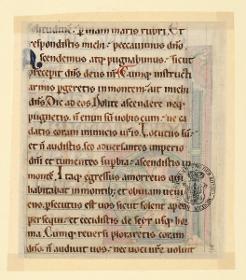 solitudinē p̱ uiam maris rubri. Et
respondistis michi. peccauimus dño
Ascendemus atq; pugnabimus. sicut
precepit dñs deus nr̄. Cumq; instructi
armis pgeretis in montem. ait m
dñs. Dic ad eos. Nolite ascendere neq;
pugnetis. ñ enim sū uobiscum. ne ca
datis coram inimicis uris. Locutus sū
et ñ audistis. sed aduersantes imperio
dñi et tumentes supbia. ascendistis in
montē. Itaq; egressus amorreus qui
habitabat in montib; et obuiam ueni
ens. psecutus est uos sicut solent apes
persequi. et cecidit de seyr usq; hor
ma. Cumq; reuersi ploraretis coram
dño. ñ audiuit uos. nec uoci ure uoluit